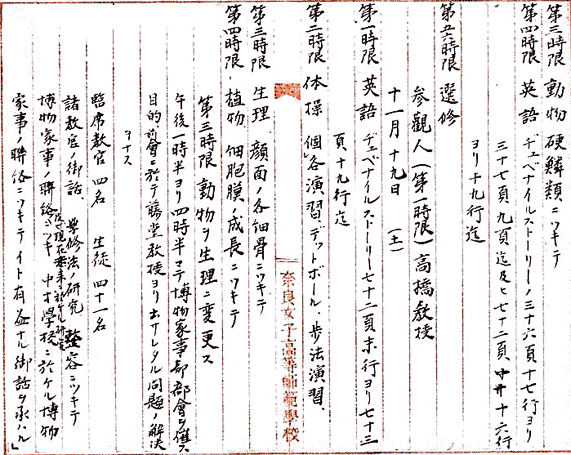 第三時限 動物 硬鱗類ニツキテ
第四時限 英語 ヂュベナイルストーリーノ三十六頁十七行ヨリ
三十七頁九頁迄及ヒ七十二頁十六行
ヨリ十九行迄
第五六時限 選修
参觀人(第一時限)高橋教授
十一月十九日(土)
第一時限 英語 ヂュベナイルストーリー七十二頁末行ヨリ七十三
頁十九行迄
第二時限 体操 個各演習、デットボール、歩法演習、
第三時限 生理 顔面ノ各細骨ニツキテ
第四時限 植物 細胞膜ノ成長ニツキテ
第三時限動物ヲ生理ニ変更ス
午後一時半ヨリ四時半マデ博物家事部部會ヲ催ス
目的前會ニ於テ藤堂教授ヨリ出サレタル問題ノ解決
ヲナス
臨席教官 四名 生徒 四十一名
諸教官ノ御話 学修法ノ研究 整容ニツキテ
博物家事ノ聯絡ニツキ 中才學校ニ於ケル博物
家事ノ聯絡ニツキテイト有益ナル御話ヲ承ハル」
奈良女子高等師範學校